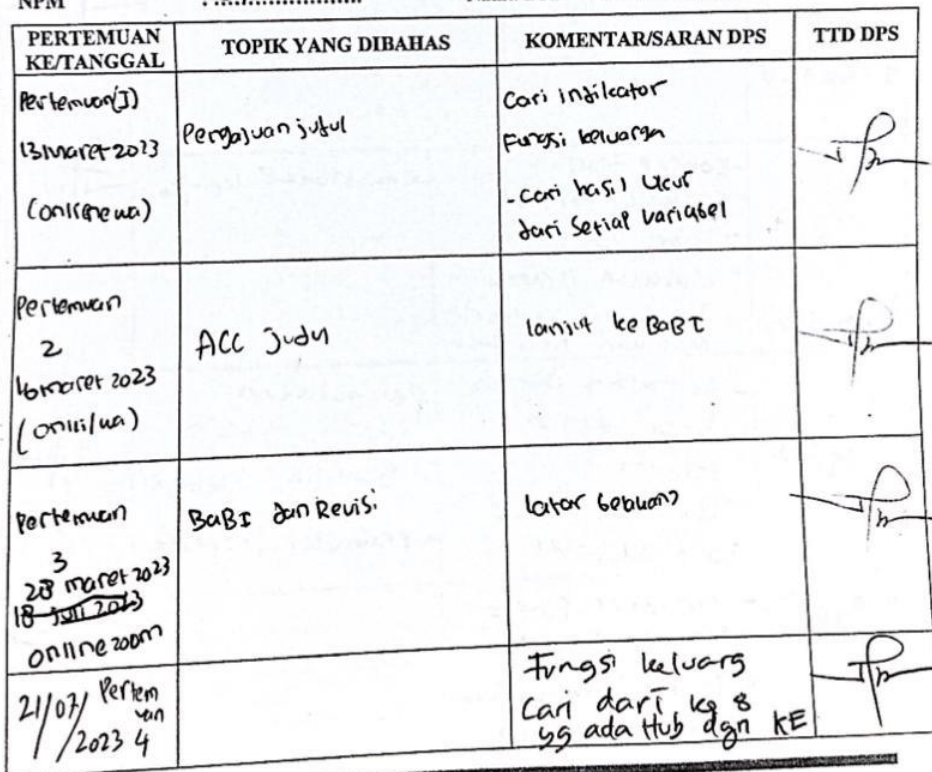 NPM : ........................
PERTEMUAN KE/TANGGAL
TOPIK YANG DIBAHAS
KOMENTAR/SARAN DPS
TTD DPS
Pertemuan(I)
13 Maret 2023
Pengajuan judul
Cari indikator
Fungsi keluarga
- Cari hasil Ukur
dari Setiap variabel
Pertemuan
2
16 maret 2023
ACC Judul
lanjut ke BaB I
Pertemuan
3
28 maret 2023
18 Juli 2023
online zoom
BaB I dan Revisi
latar belakang
21/07/2023
Pertemuan
4
Fungsi keluarg
Cari dari ke 8
yg ada Hub dgn KE